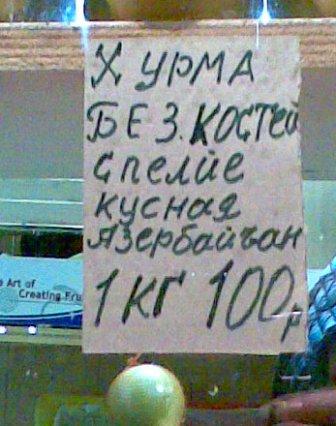 ХУРМА
БЕЗ.КОСТЕЙ
СПЕЛИЕ
КУСНАЯ
ЯЗЕРбАЙЧАН
1 КГ 100р
Art of
Creating Fru